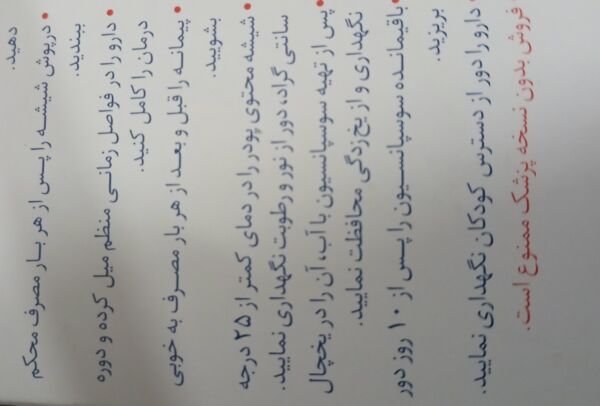 دهید.
• درپوش شیشه را پس از هر بار مصرف محکم
ببندید.
• دارو را در فواصل زمانی منظم میل کرده و دوره
درمان را کامل کنید.
• پیمانه را قبل و بعد از هر بار مصرف به خوبی
بشویید.
• شیشه محتوی پودر را در دمای کمتر از ۲۵ درجه
سانتی گراد، دور از نور و رطوبت نگهداری نمایید.
• پس از تهیه سوسپانسیون با آب، آن را در یخچال
نگهداری و از یخ زدگی محافظت نمایید.
• باقیمانده سوسپانسیون را پس از ۱۰ روز دور
بریزید.
• دارو را دور از دسترس کودکان نگهداری نمایید.
• فروش بدون نسخه پزشک ممنوع است.